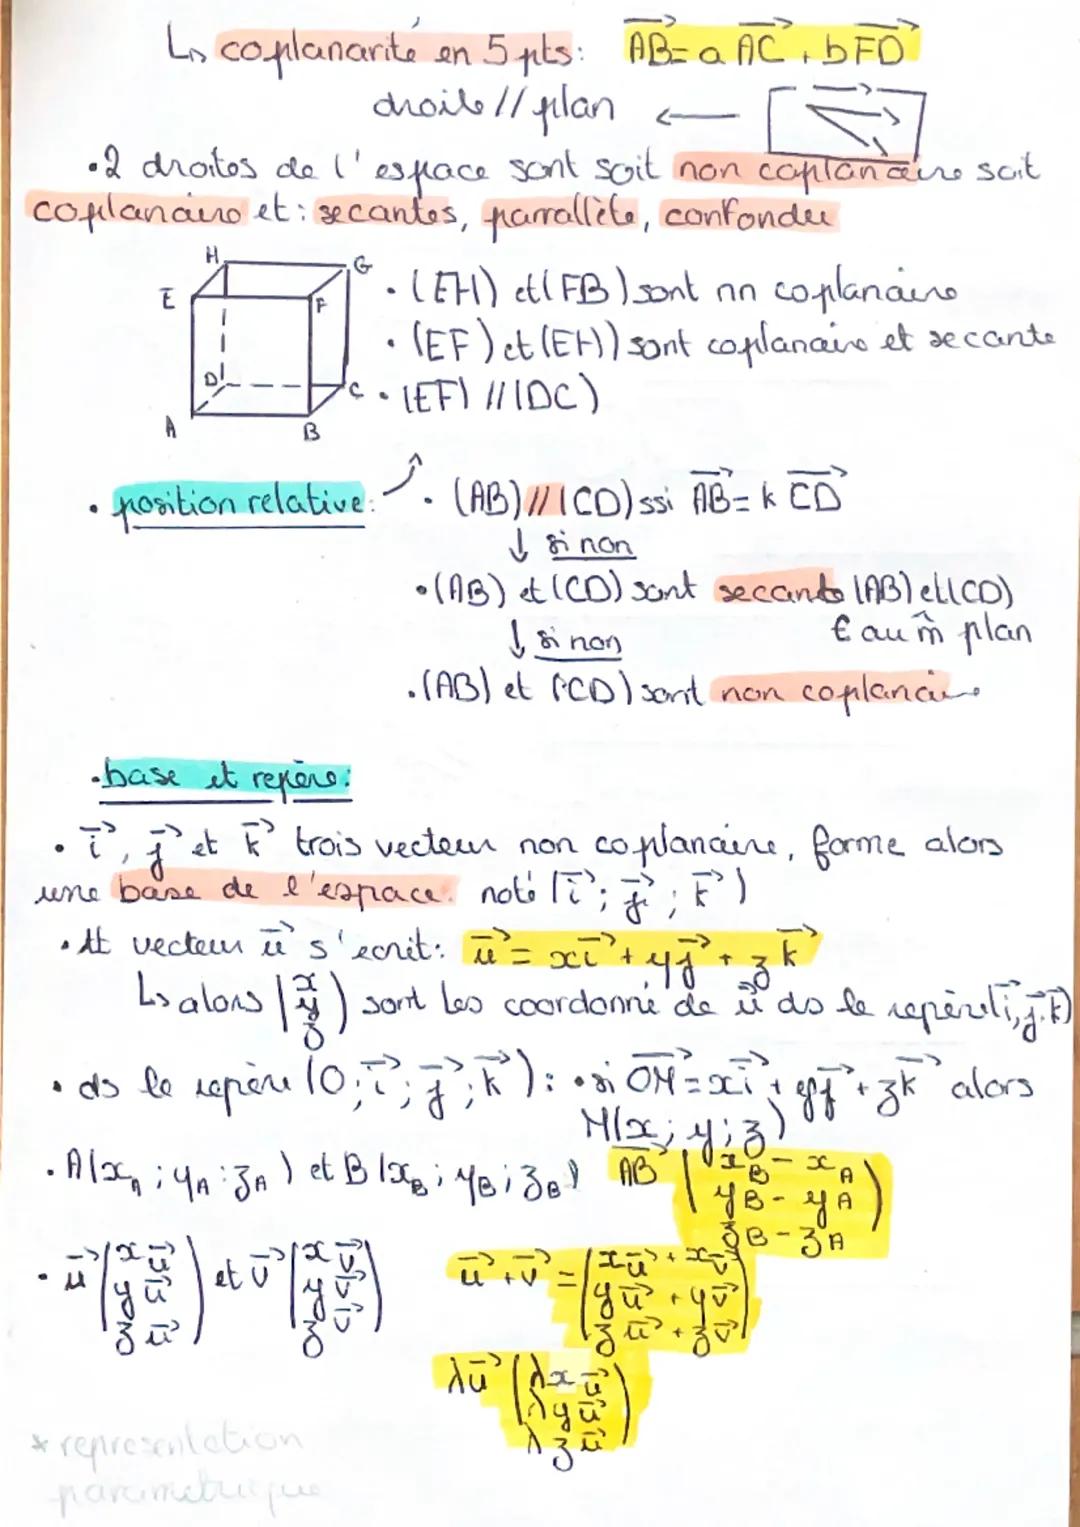 ↳ coplanarité en 5 pts: AB = a AC + b FD
droite // plan ←
• 2 droites de l'espace sont soit non coplanaire soit
coplanaire et : secantes, parralléte, confondu
H G
E F
D C
A B
• (EH) et (FB) sont nn coplanaire
• (EF) et (EH)) sont coplanaire et secante
• (EF) // (DC)
• position relative:
• (AB) // (CD) ssi AB = k CD
↓ si non
• (AB) et (CD) sont secante (AB) et (CD)
€ au m̂ plan
↓ si non
• (AB) et (CD) sont non coplanaire
• base et repère:
• i, j et k trois vecteur non coplanaire, forme alors
une base de l'espace. noté (i; j; k)
• tt vecteur u s'ecrit: u = xi + yj + zk
↳ alors (x y z) sont les coordonné de u ds le repère (i, j, k)
• ds le repère (O; i; j; k): • si OM = xi + yj + zk alors
M(x; y; z)
• A(xA; yA; zA) et B(xB; yB; zB) AB (xB - xA
yB - yA
zB - zA)
• u (x u y u z u) et v (x v y v z v) u + v = (x u + x v
y u + y v
z u + z v)
λu (λ x u
λ y u
λ z u)
* representation
parametrique